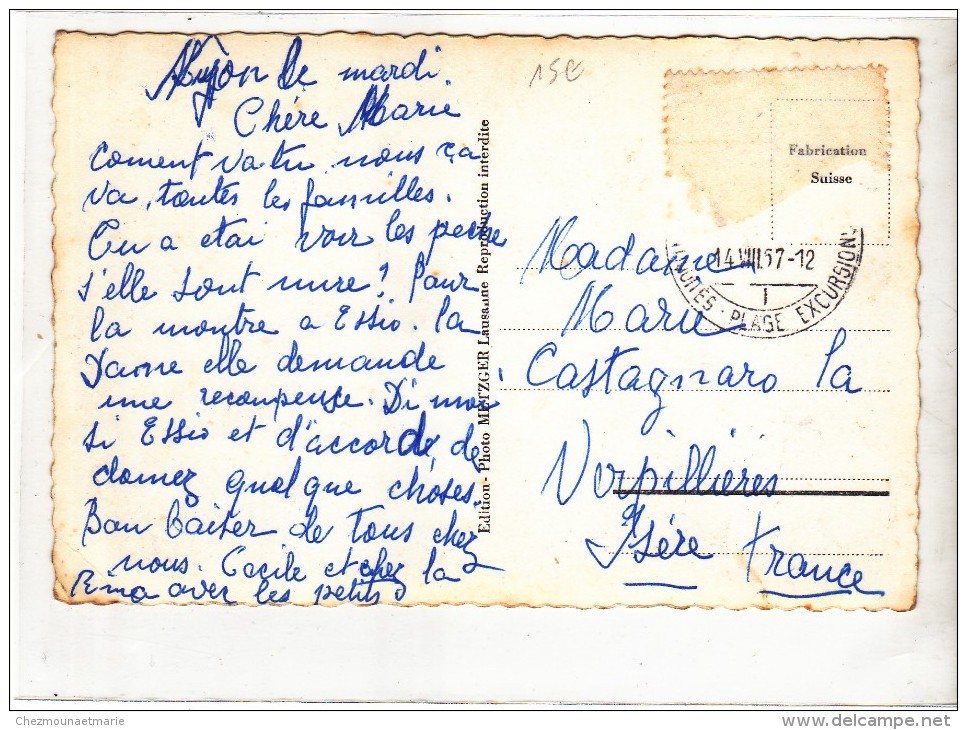 Nyon le mardi.
Chére Marie
Coment va tu nous ça
va, toutes les familles.
On a etai voir les peche
s'elle sont mure? Pour
la montre a Essio. la
Dame elle demande
une recompense. Di moi
si Essio et d'accorde de
donnez quelque choses.
Bon baiser de tous chez
nous. Cecile et chez la
Rina avec les petits
15€
Edition - Photo METZGER Lausanne Reproduction interdite
Fabrication
Suisse
14.VIII.67-12
PLAGE EXCURSION
Madame
Marie
Castagnaro la
Verpillières
Isére France
Chezmounaetmarie
www.delcampe.net